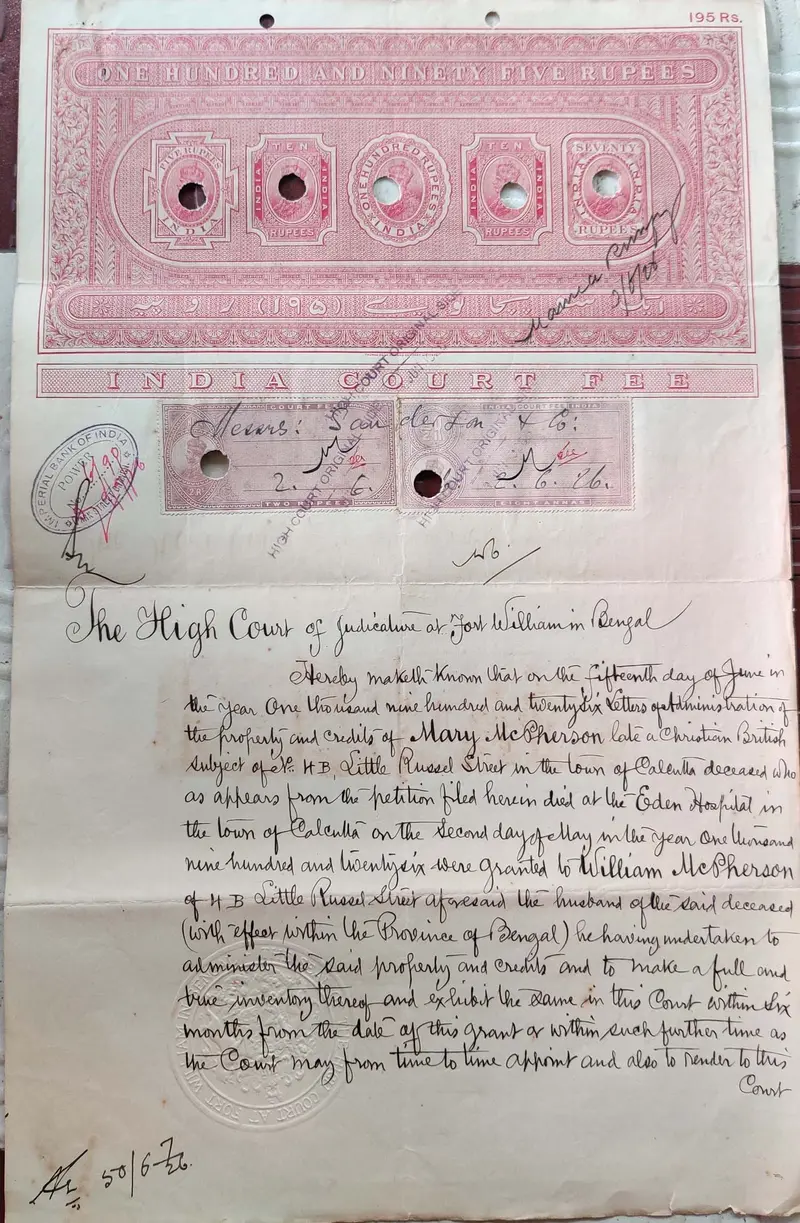 195 Rs.
ONE HUNDRED AND NINETY FIVE RUPEES
FIVE RUPEES
INDIA
TEN
INDIA INDIA
RUPEES
ONE HUNDRED RUPEES
INDIA
TEN
INDIA INDIA
RUPEES
SEVENTY
INDIA INDIA
RUPEES
INDIA COURT FEE
HIGH COURT ORIGINAL SIDE
COURT FEE
INDIA COURT FEE
Messrs: Sanderson & Co:
2. 6.
2. 6. 26.
TWO RUPEES
EIGHT ANNAS
HIGH COURT ORIGINAL
HIGH COURT ORIGINAL
IMPERIAL BANK OF INDIA
POWER
The High Court of Judicature at Fort William in Bengal
Hereby maketh known that on the fifteenth day of June in
the year One thousand nine hundred and twenty six Letters of Administration of
the property and credits of Mary McPherson late a Christian British
subject of No. 4B, Little Russel Street in the town of Calcutta deceased who
as appears from the petition filed herein died at the Eden Hospital in
the town of Calcutta on the Second day of May in the year One thousand
nine hundred and twentysix were granted to William McPherson
of 4B Little Russel Street aforesaid the husband of the said deceased
(with effect within the Province of Bengal) he having undertaken to
administer the said property and credits and to make a full and
true inventory thereof and exhibit the same in this Court within six
months from the date of this grant or within such further time as
the Court may from time to time appoint and also to render to this
Court